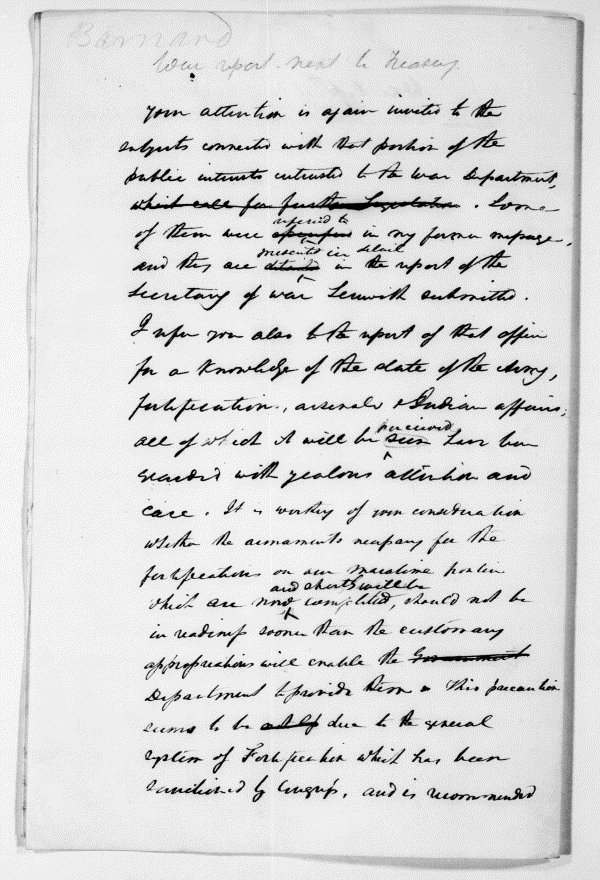 Barnard
War report next to Treasury
Your attention is again invited to the
subjects connected with that portion of the
public interests intrusted to the War Department,
which call for further Legislation. Some
referred to
of them were in my former message,
presented in detail
and they are in the report of the
Secretary of War herewith submitted.
I refer you also to the report of that officer
for a knowledge of the state of the Army,
fortifications, arsenals & Indian affairs,
perceived
all of which it will be seen have been
guarded with zealous attention and
care. It is worthy of your consideration
whether the armaments necessary for the
fortifications on our maratime frontier
and shortly will be
which are now completed, should not be
in readiness sooner than the customary
appropriations will enable the Government
Department to provide them. This precaution
seems to be due to the general
system of Fortification which has been
sanctioned by Congress, and is recommended